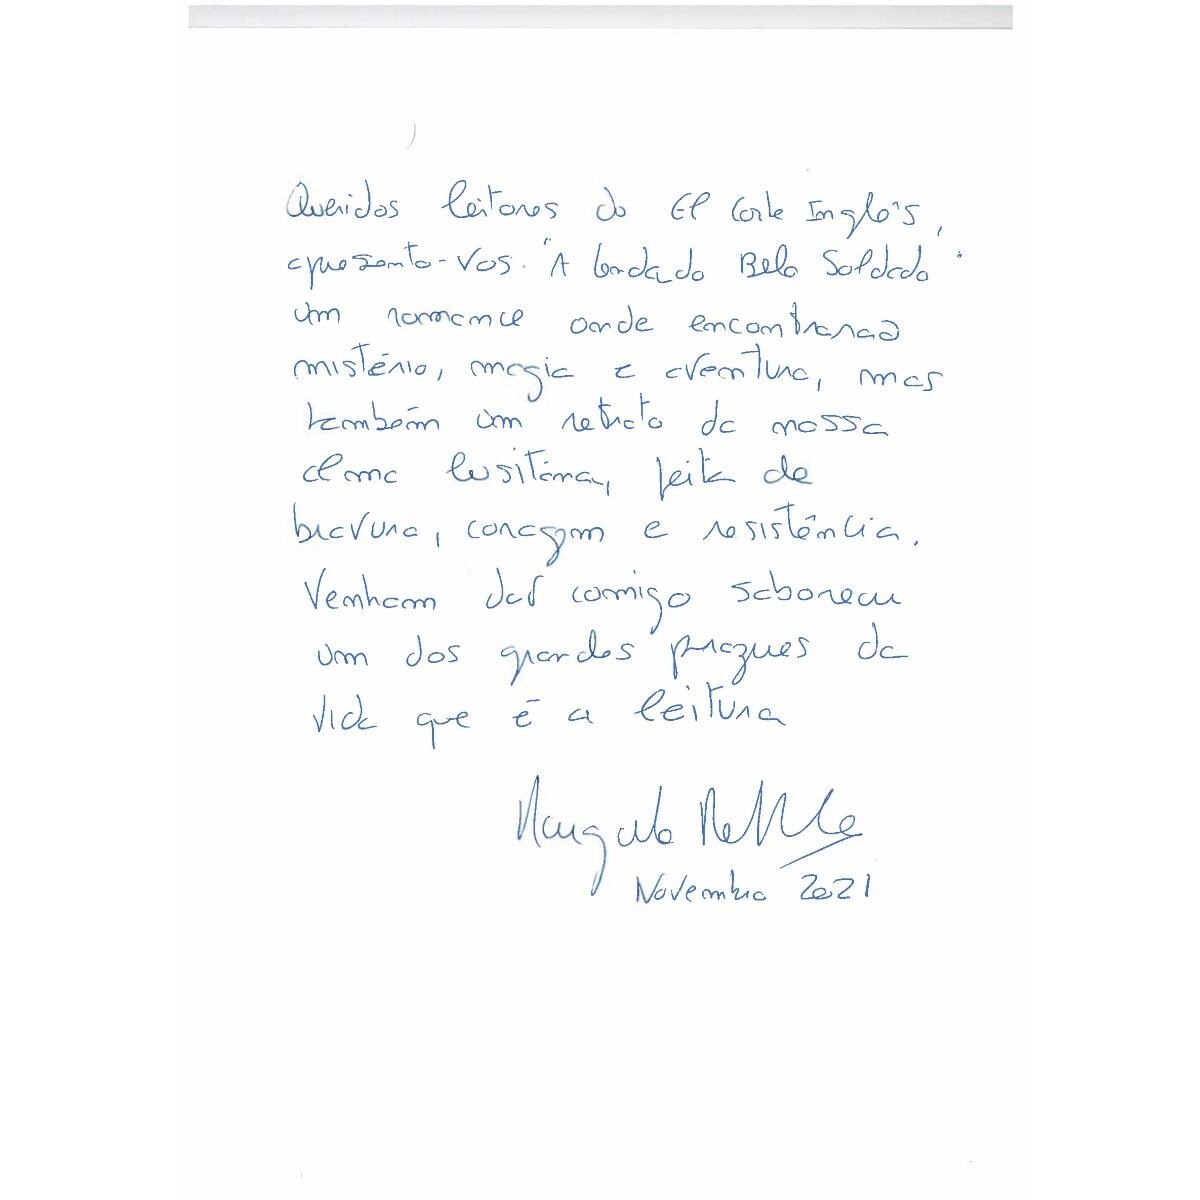 Queridos leitores do El Corte Inglês,
apresento-vos "A Lenda do Belo Soldado"
um romance onde encontrarão
mistério, magia e aventura, mas
também um retrato da nossa
alma lusitana, feita de
bravura, coragem e resistência.
Venham daí comigo saborear
um dos grandes prazeres da
vida que é a leitura
Margarida Rebelo
Novembro 2021